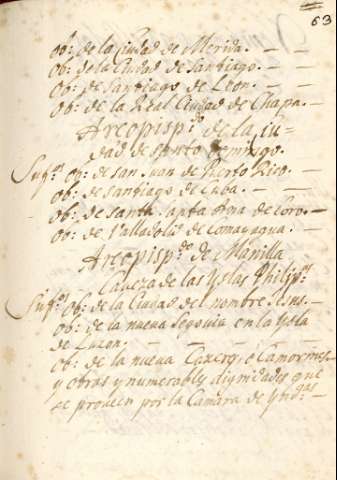 63
Ob: de la Ciudad de Merida. — —
Ob: de la Ciudad de Santiago. — —
Ob: de Santiago de Leon. — —
Ob: de la Real Ciudad de Chapa. —
Arcopisp.do de la Ciu-
dad de Santo Domingo.
Sufg.os Ob: de San Juan de Puerto Rico. —
Ob: de Santiago de Cuba. — —
Ob: de Santa Ana de Coro. —
Ob: de Valladolid de Comayagua. —
Arcopisp.do de Manilla
Caveza de las Yslas Philip.s
Sufg.os Ob: de la Ciudad del nombre Jesus. —
Ob: de la nueva Segovia en la Ysla
de Luzon. — — — —
Ob: de la nueva Cazerg. o Camorines —
y otras ynumerables dignidades que
se proveen por la Camara de Ynd.as —